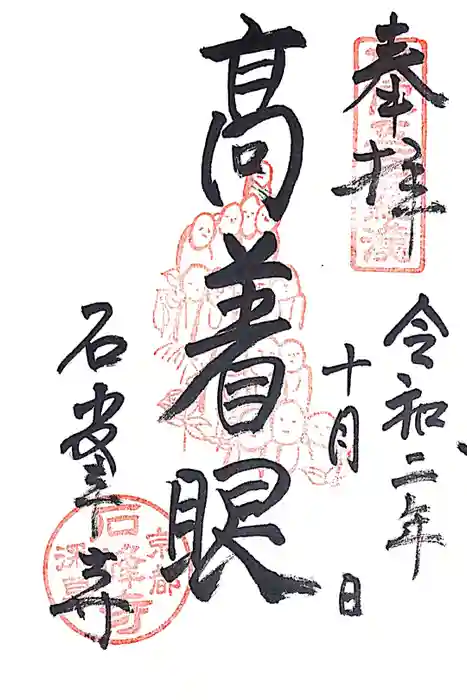 奉拝
令和二年
十月 日
高着眼
石峰寺
京都
深草
石峰寺